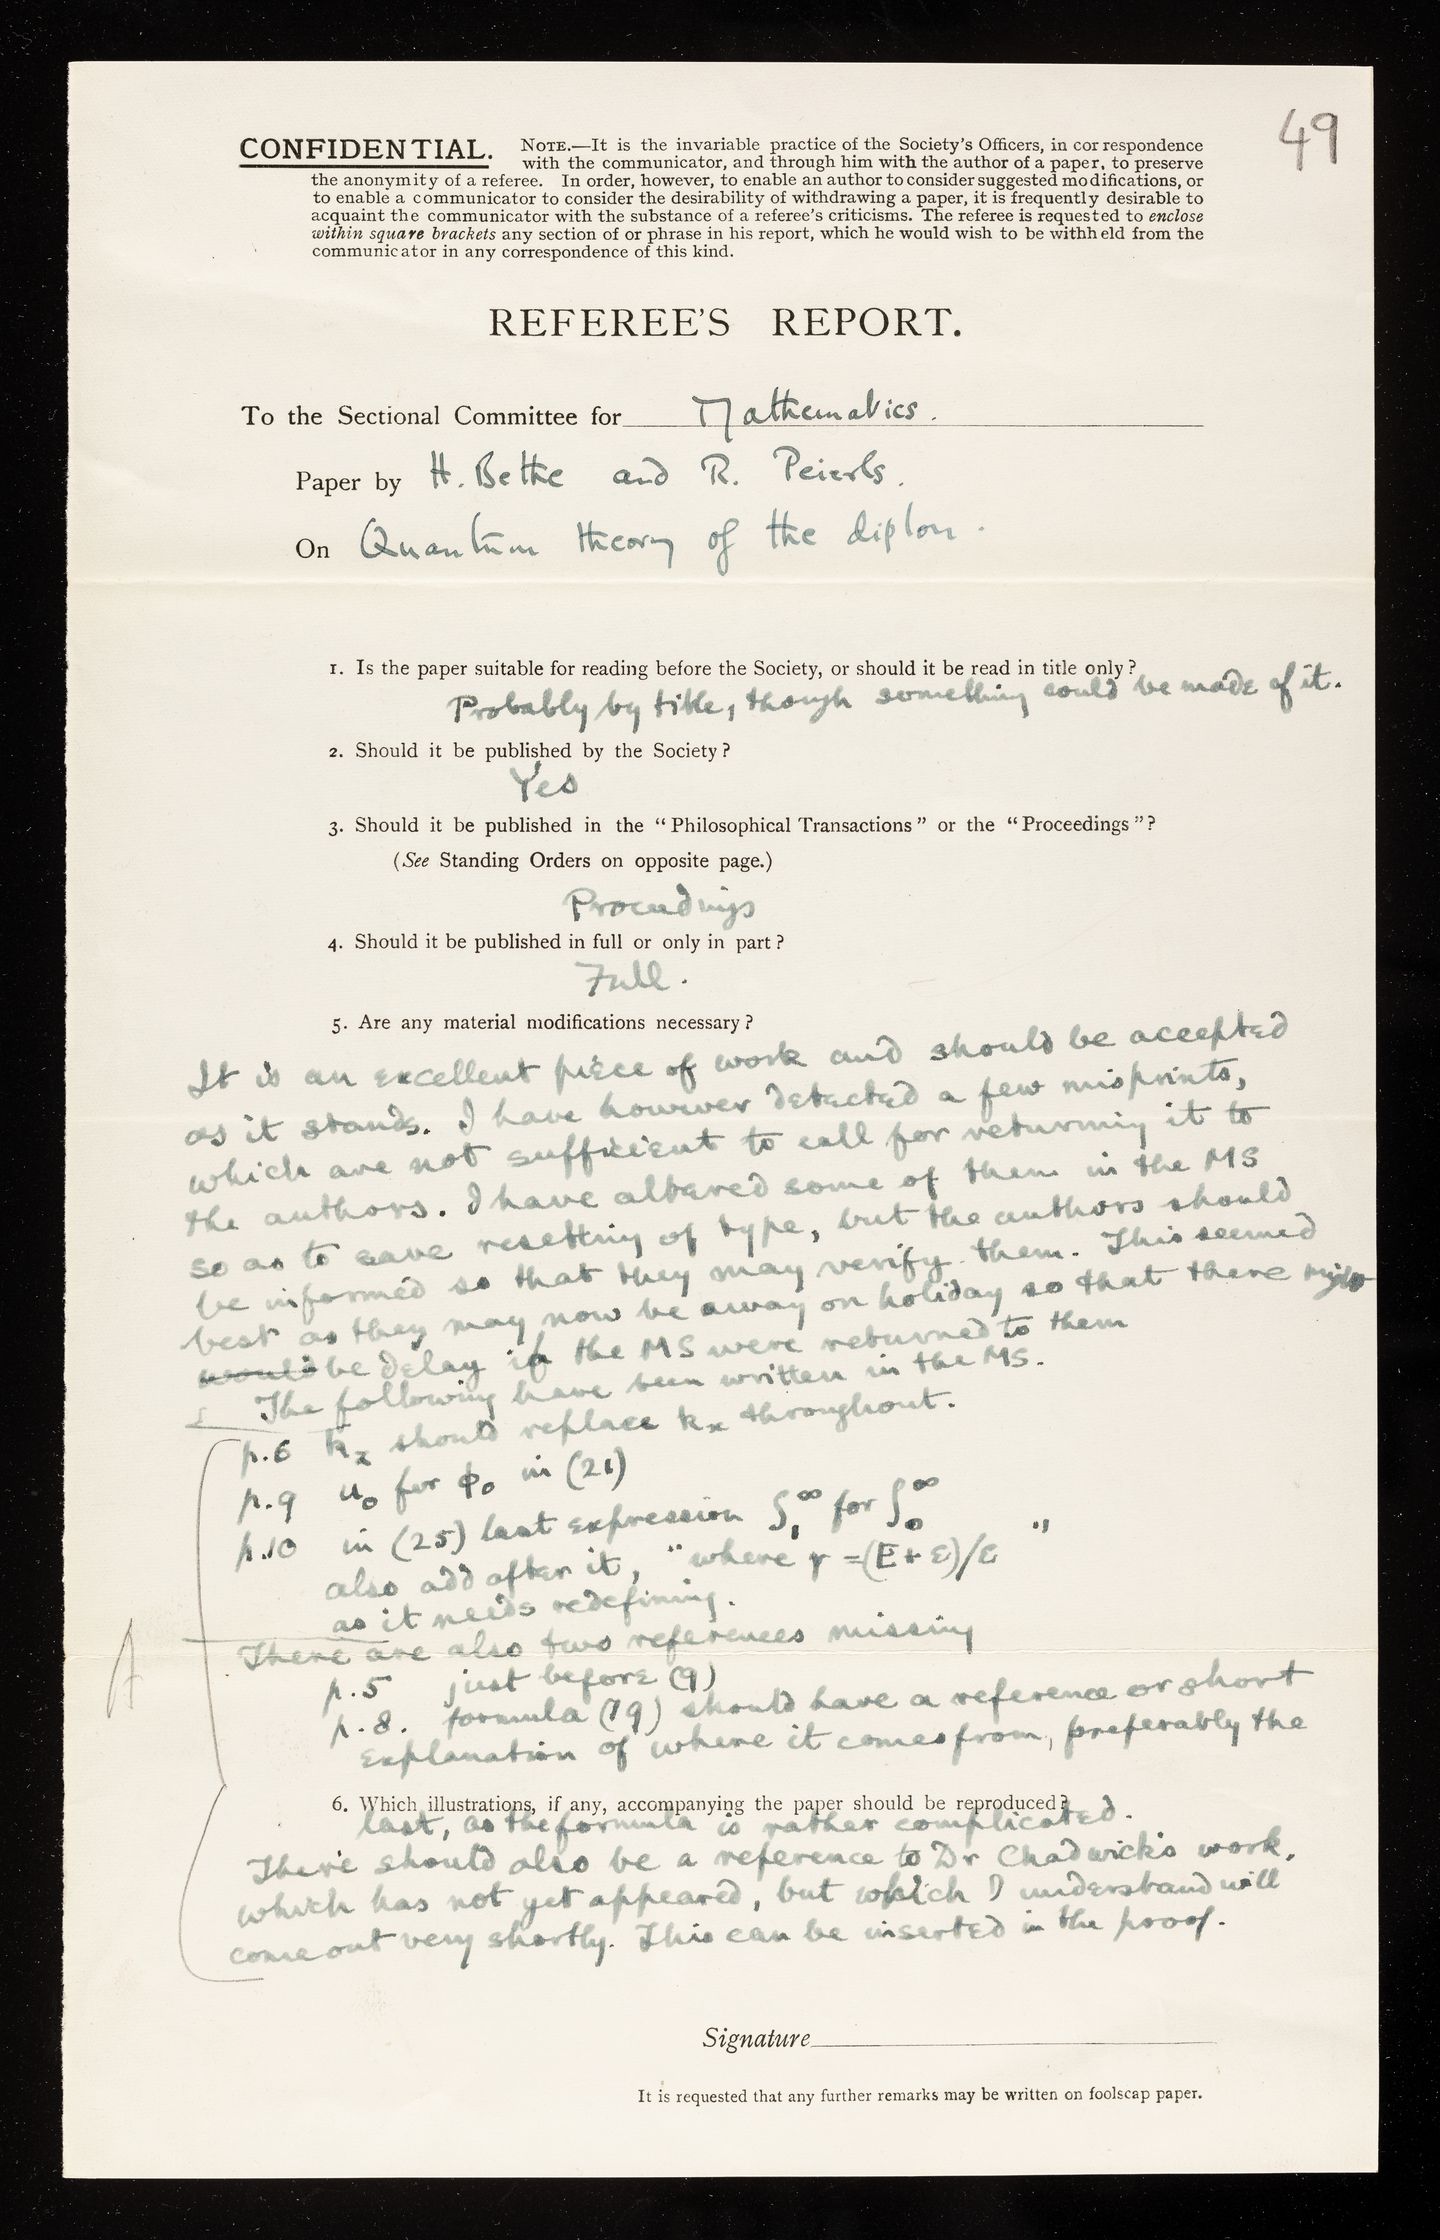 49
CONFIDENTIAL. NOTE.—It is the invariable practice of the Society's Officers, in correspondence
with the communicator, and through him with the author of a paper, to preserve
the anonymity of a referee. In order, however, to enable an author to consider suggested modifications, or
to enable a communicator to consider the desirability of withdrawing a paper, it is frequently desirable to
acquaint the communicator with the substance of a referee's criticisms. The referee is requested to enclose
within square brackets any section of or phrase in his report, which he would wish to be withheld from the
communicator in any correspondence of this kind.
REFEREE'S REPORT.
To the Sectional Committee for Mathematics.
Paper by H. Bethe and R. Peierls.
On Quantum theory of the diplon.
1. Is the paper suitable for reading before the Society, or should it be read in title only?
Probably by title, though something could be made of it.
2. Should it be published by the Society?
Yes
3. Should it be published in the "Philosophical Transactions" or the "Proceedings"?
(See Standing Orders on opposite page.)
Proceedings
4. Should it be published in full or only in part?
Full.
5. Are any material modifications necessary?
It is an excellent piece of work and should be accepted
as it stands. I have however detected a few misprints,
which are not sufficient to call for returning it to
the authors. I have altered some of them in the MS
so as to save resetting of type, but the authors should
be informed so that they may verify them. This seemed
best as they may now be away on holiday so that there might
would be delay if the MS were returned to them
The following have been written in the MS.
p.6 kz should replace kx throughout.
p.9 u₀ for ϕ₀ in (21)
p.10 in (25) last expression ∫₁^∞ for ∫₀^∞
also add after it, "where γ =(E+ε)/ε "
as it needs redefining.
There are also two references missing
A
p.5 just before (9)
p.8. formula (19) should have a reference or short
explanation of where it comes from, preferably the
6. Which illustrations, if any, accompanying the paper should be reproduced?
last, as the formula is rather complicated.
There should also be a reference to Dr Chadwick's work,
which has not yet appeared, but which I understand will
come out very shortly. This can be inserted in the proof.
Signature
It is requested that any further remarks may be written on foolscap paper.